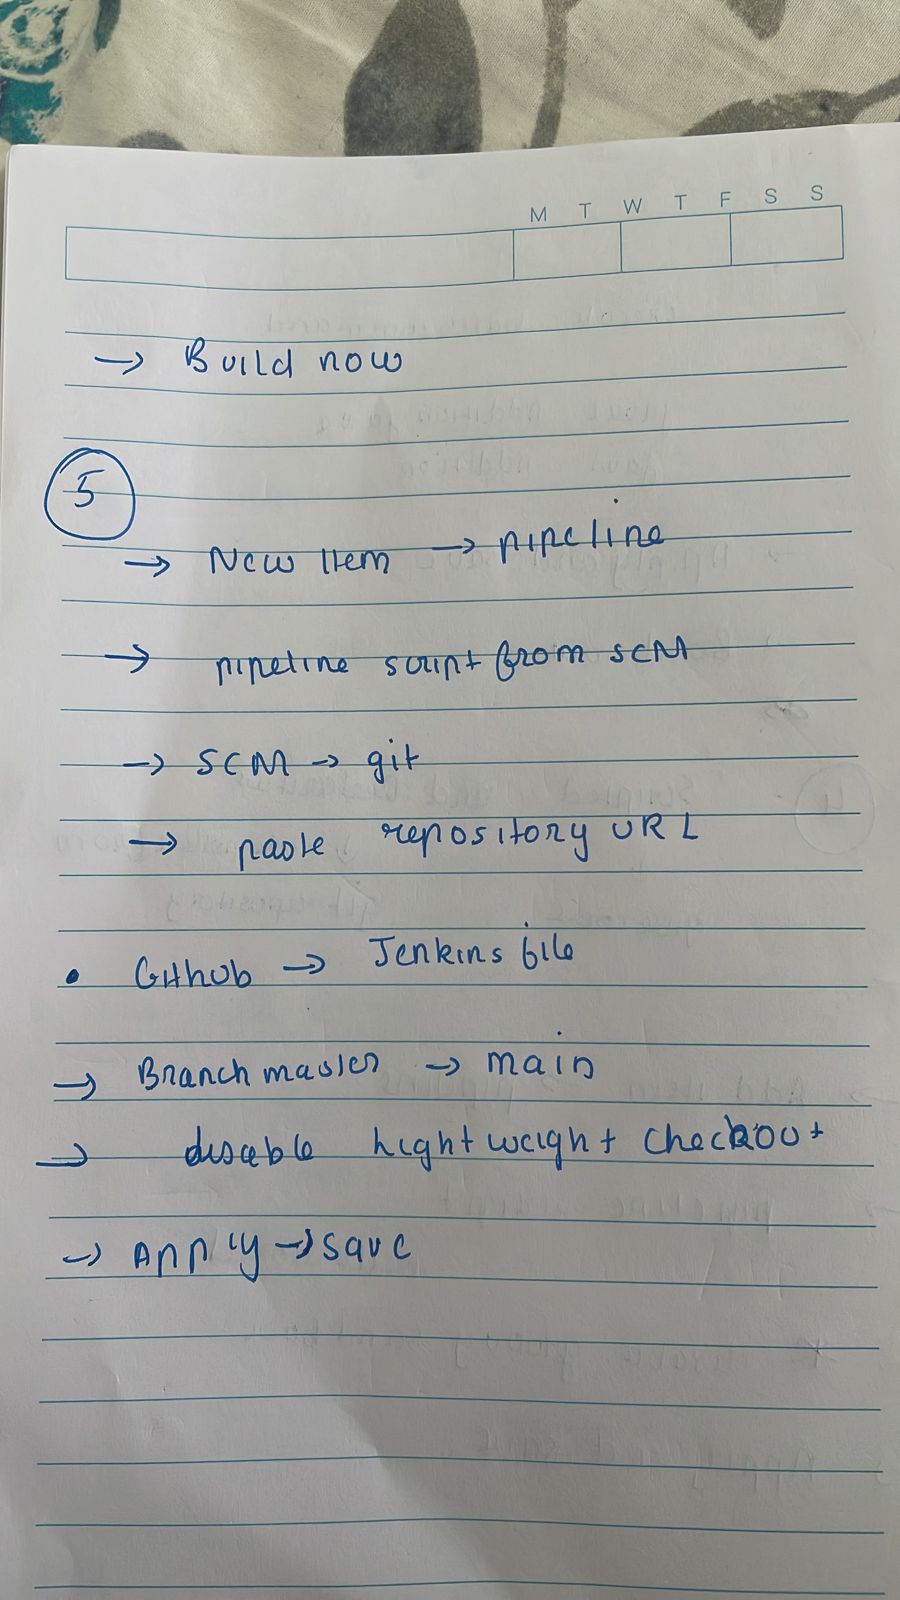 M T W T F S S
→ Build now
5
→ New item → pipeline
→ pipeline script from SCM
→ SCM → git
→ paste repository URL
• Github → Jenkins file
→ Branch master → main
→ disable lightweight checkout
→ Apply → save